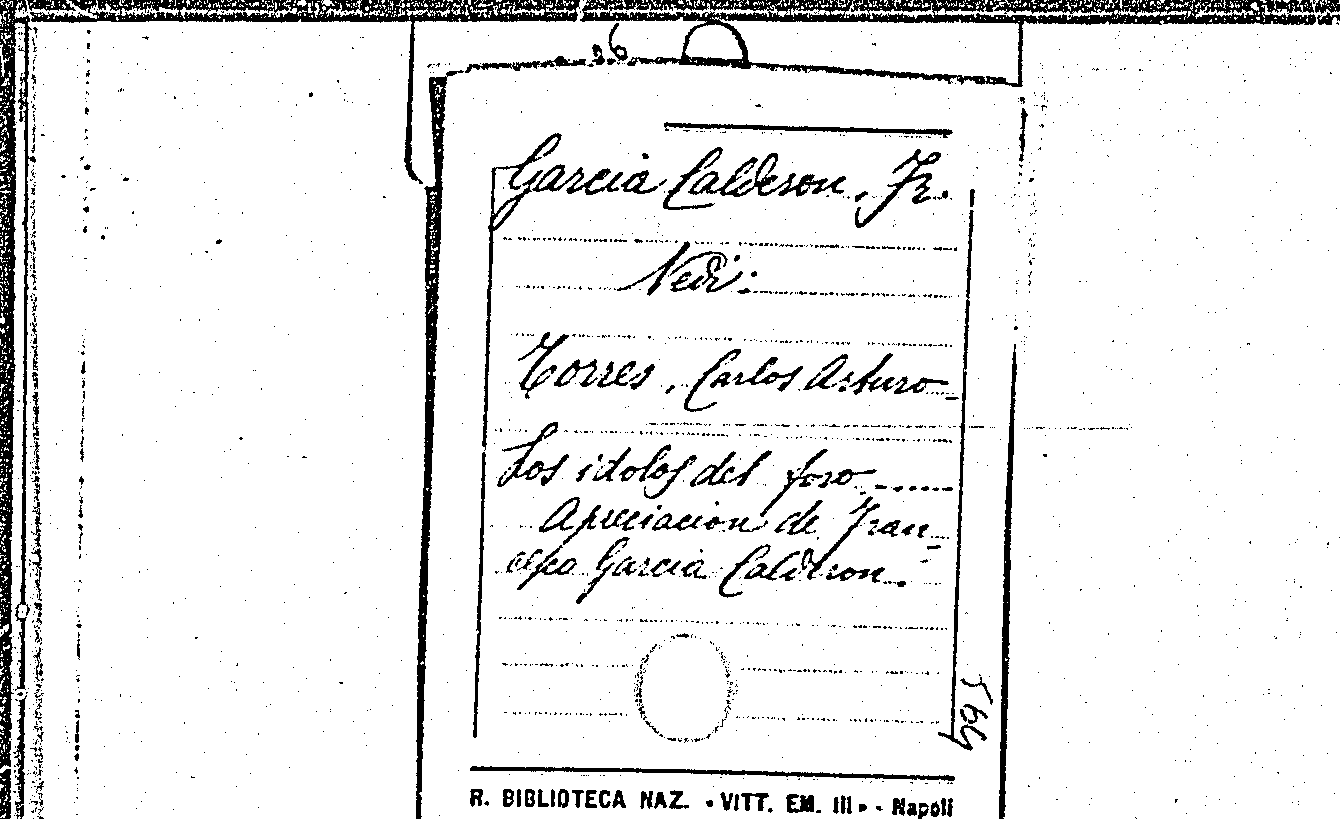 96
Garcia Calderon, Fr.
Vedi:
Torres, Carlos Arturo_
Los idolos del foro......
Apreciacion de Fran-
cisco Garcia Calderon.
R. BIBLIOTECA NAZ. «VITT. EM. III» - Napoli